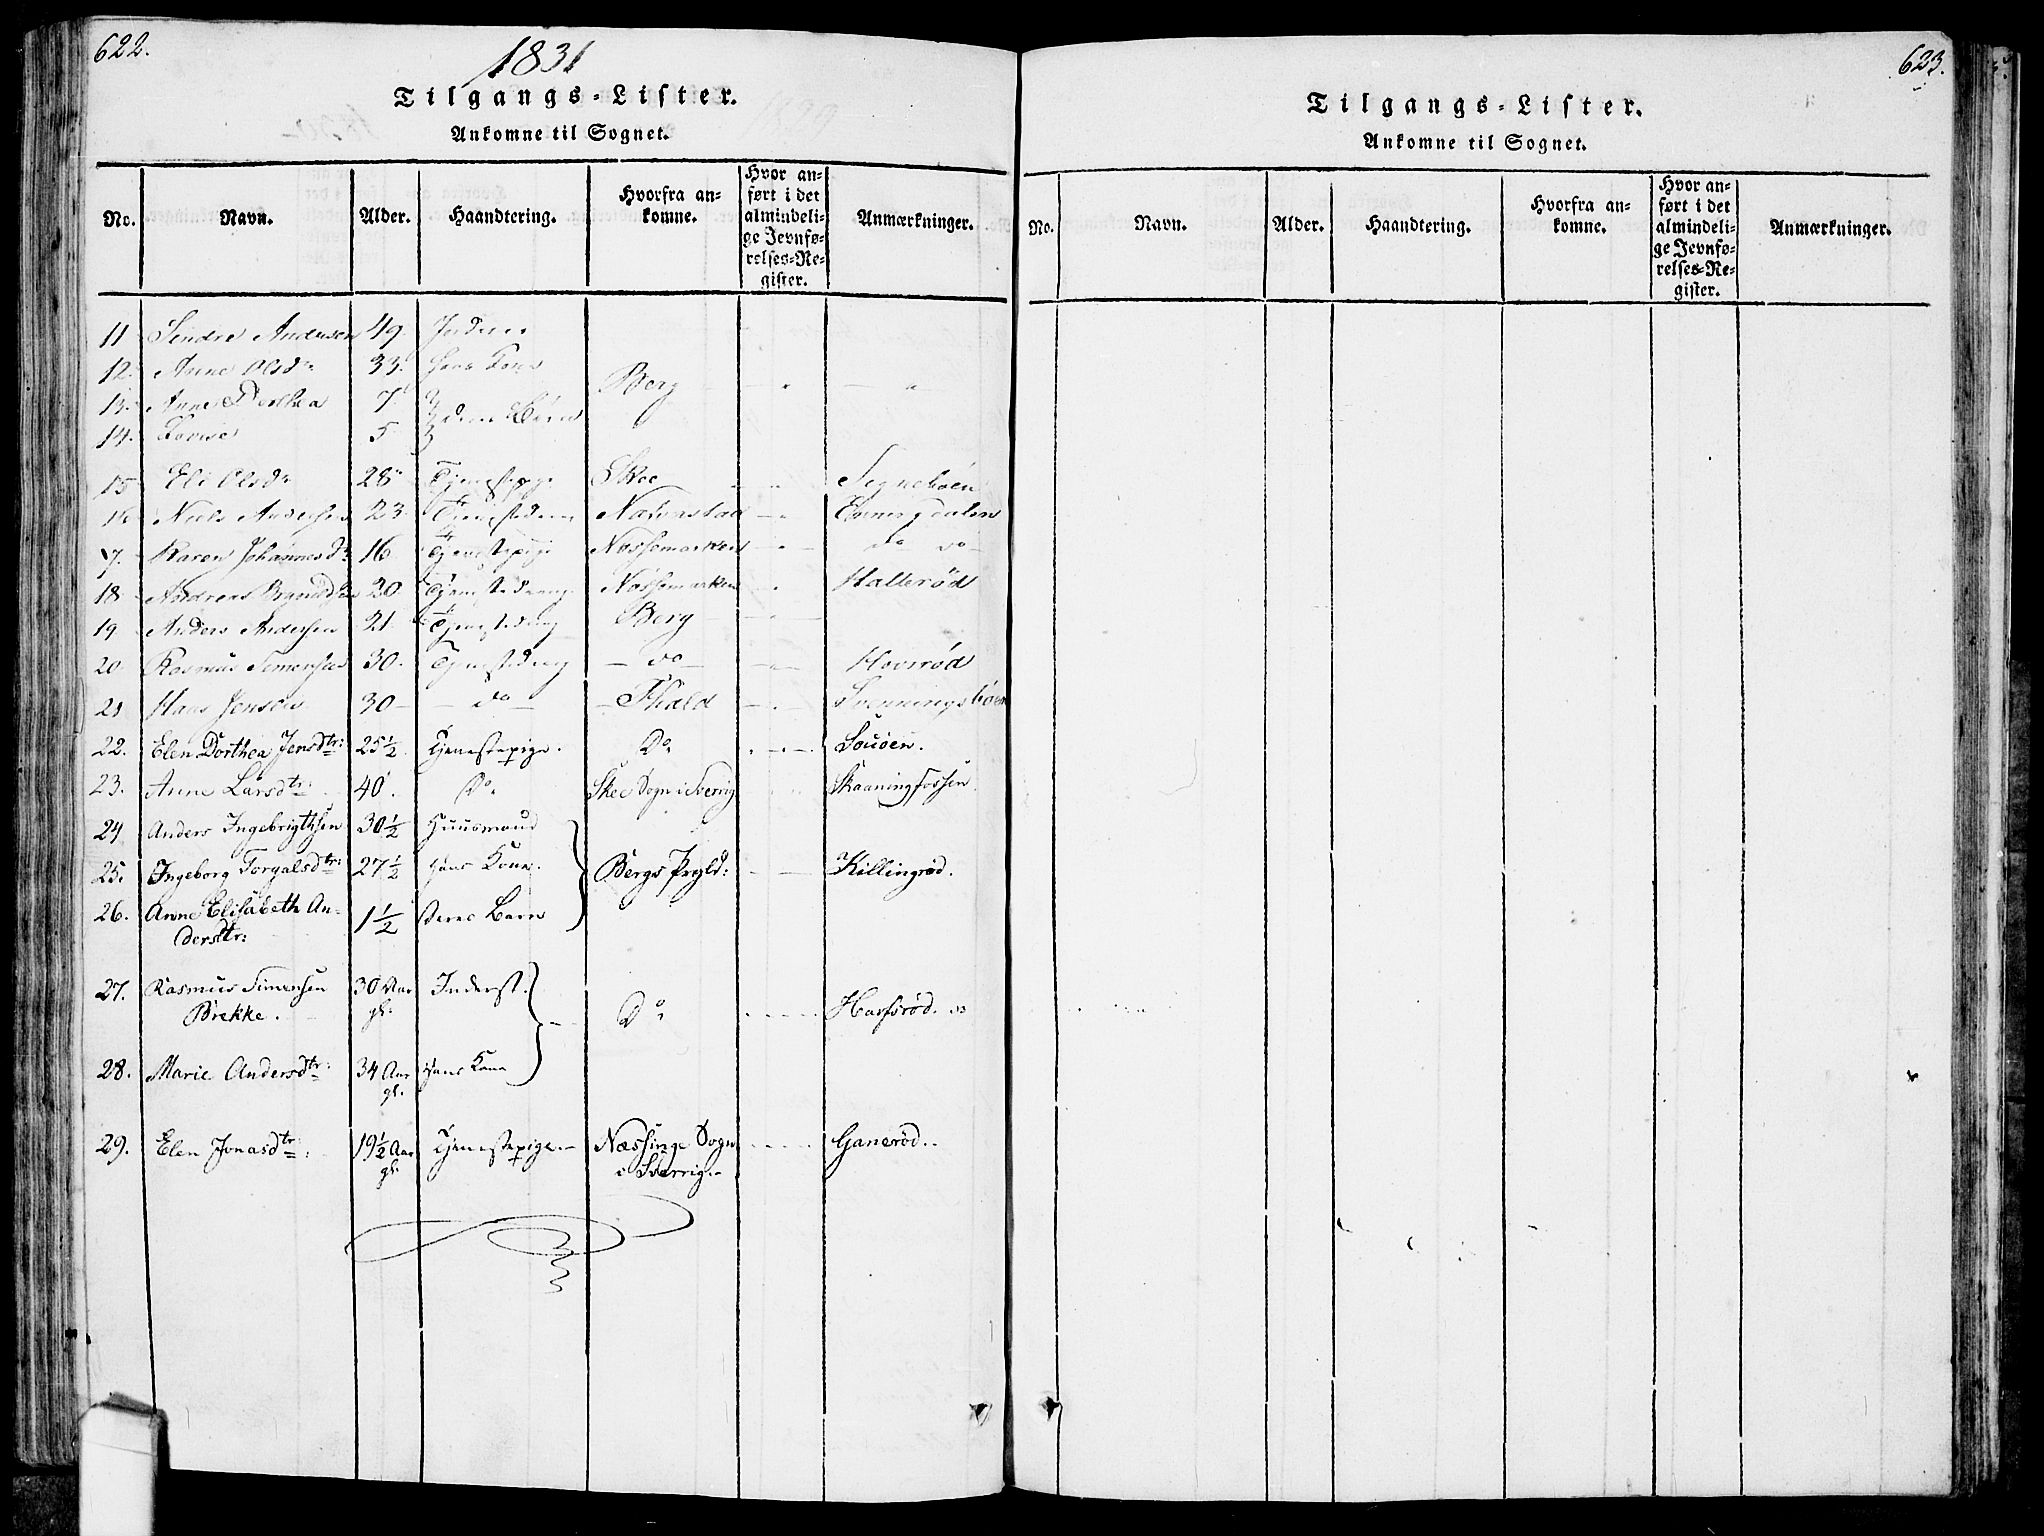 622.
1831
Tilgangs-Lister.
Ankomne til Sognet.
No. Navn. Alder. Haandtering. Hvorfra an-
komne. Hvor an-
ført i det
almindeli-
ge Jevnfø-
relses-Re-
gister. Anmærkninger.
11 Sindre Andersen 49.
12. Anne Olsdr 33. hans Kone
13. Anne Dorthea 7 Berg
14. Lovise 5 deres Børn
15 Eli Olsdr 28 Tjenestepige Skee
16 Niels Andersen 23. Tjenestedreng Enningdalen
17. Karen Johannesdr 16 Tjenestepige Nossemarken do do
18 Andreas 20 Tjenestedreng Nossemarken Hallerød
19 Anders Andersen 21 Tjenestedreng Berg
20 Rasmus Simensen 30. Tjenestedreng do Hovsrød
21 Hans Jensen 30 do Fhald Svenningsbøen
22. Elen Dorthea Jensdtr: 25½ Tjenestepige. Do Souøen.
23. Anne Larsdtr: 40. Do Skee Sogn i Sverrig Skaaningfossen
24 Anders Ingebrigthsen 30½ Huusmand
25. Ingeborg Torgalsdtr: 27½ hans Kone. Bergs Prgld: Killingrød.
26. Anne Elisabeth An-
dersdtr: 1½ deres Barn
27. Rasmus Simensen
Brekke. 30 Aar
gl. Inderst. Do Harfsrød.
28. Marie Andersdtr: 34 Aar
gl. hans Kone
29. Elen Jonasdtr: 19½ Aar
gl. Tjenestepige. Næssinge Sogn
i Sverrig. Ganerød.
623.
Tilgangs-Lister.
Ankomne til Sognet.
No. Navn. Alder. Haandtering. Hvorfra an-
komne. Hvor an-
ført i det
almindeli-
ge Jevnfø-
relses-Re-
gister. Anmærkninger.